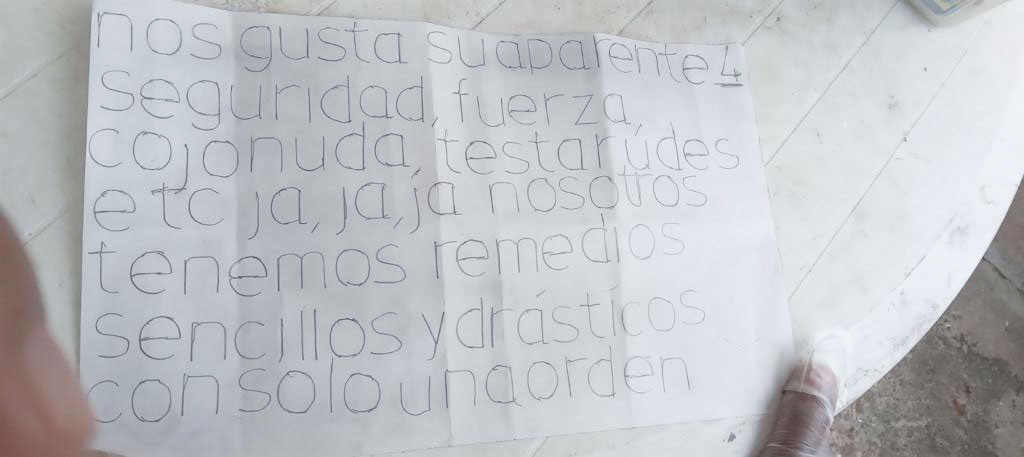 nos gusta su aparente 4
seguridad, fuerza,
cojonuda, testarúdes
etc ja, ja, ja nosotros
tenemos remedios
sencillos y drásticos
con solo una orden